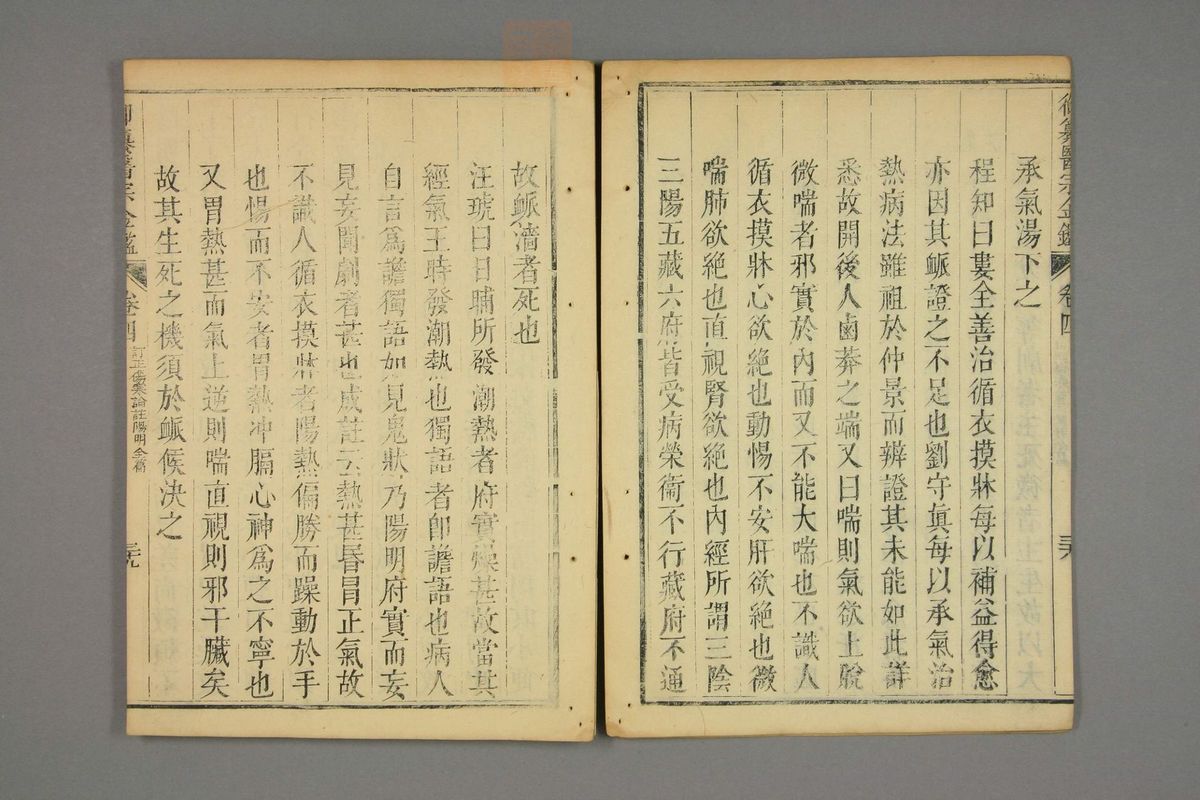 御纂醫宗金鑑 卷四 三八
承氣湯下之
程知曰婁全善治循衣摸牀每以補益得愈
亦因其脈證之不足也劉守真每以承氣治
熱病法雖祖於仲景而辨證其未能如此詳
悉故開後人鹵莽之端又曰喘則氣欲上脫
微喘者邪實於內而又不能大喘也不識人
循衣摸牀心欲絕也動惕不安肝欲絕也微
喘肺欲絕也直視腎欲絕也內經所謂三陰
三陽五藏六府皆受病榮衞不行藏府不通
故脈濇者死也
汪琥曰日晡所發潮熱者府實燥甚故當其
經氣王時發潮熱也獨語者卽譫語也病人
自言爲譫獨語如見鬼狀乃陽明府實而妄
見妄聞劇者甚也成註云熱甚昬冒正氣故
不識人循衣摸牀者陽熱偏勝而躁動於手
也惕而不安者胃熱冲膈心神爲之不寧也
又胃熱甚而氣上逆則喘直視則邪干臟矣
故其生死之機須於脈候決之
御纂醫宗金鑑 卷四 訂正傷寒論註陽明全篇 三九